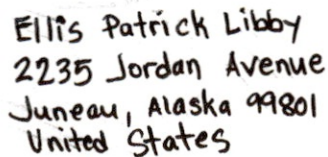 Ellis Patrick Libby
2235 Jordan Avenue
Juneau, Alaska 99801
United States